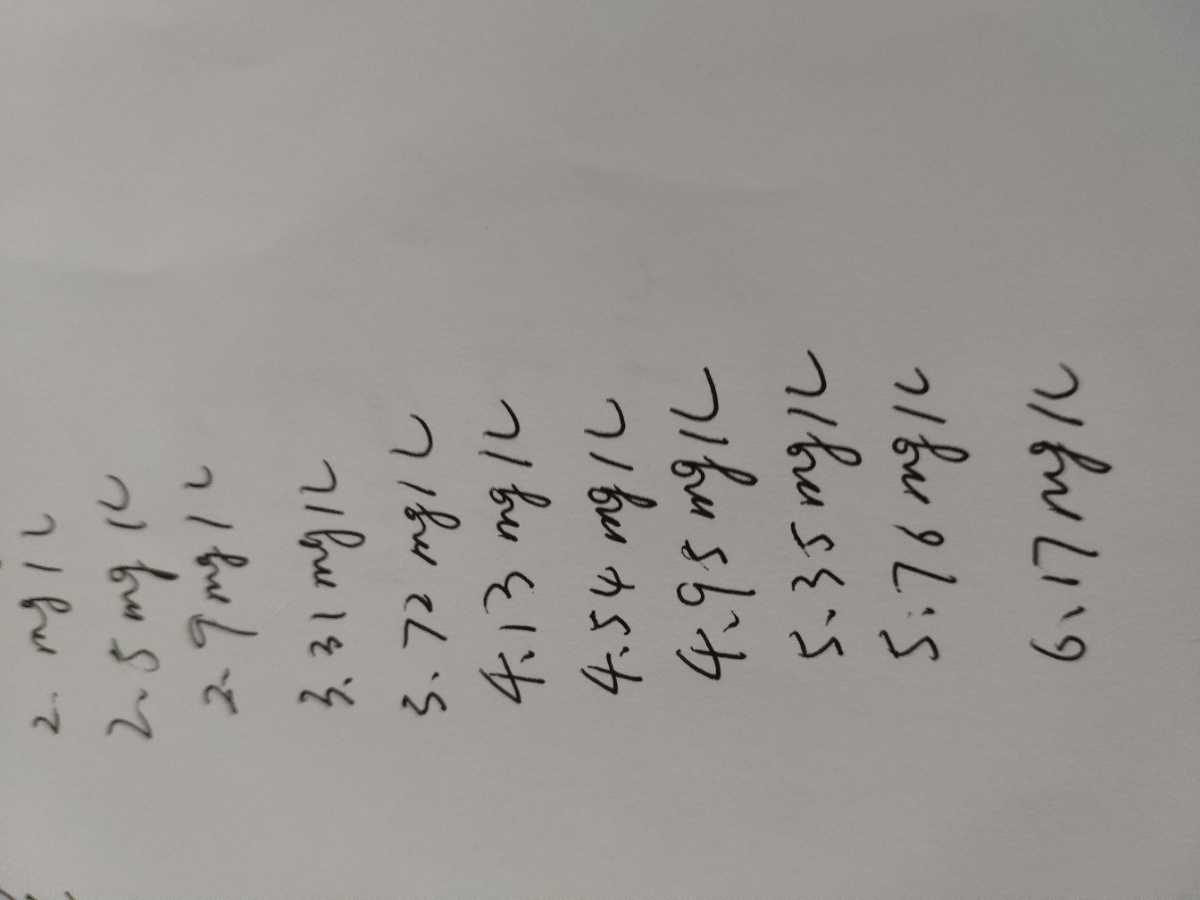 2. mg/L
2.5 mg/L
2.9 mg/L
3.31 mg/L
3.72 mg/L
4.13 mg/L
4.54 mg/L
4.95 mg/L
5.35 mg/L
5.76 mg/L
6.17 mg/L